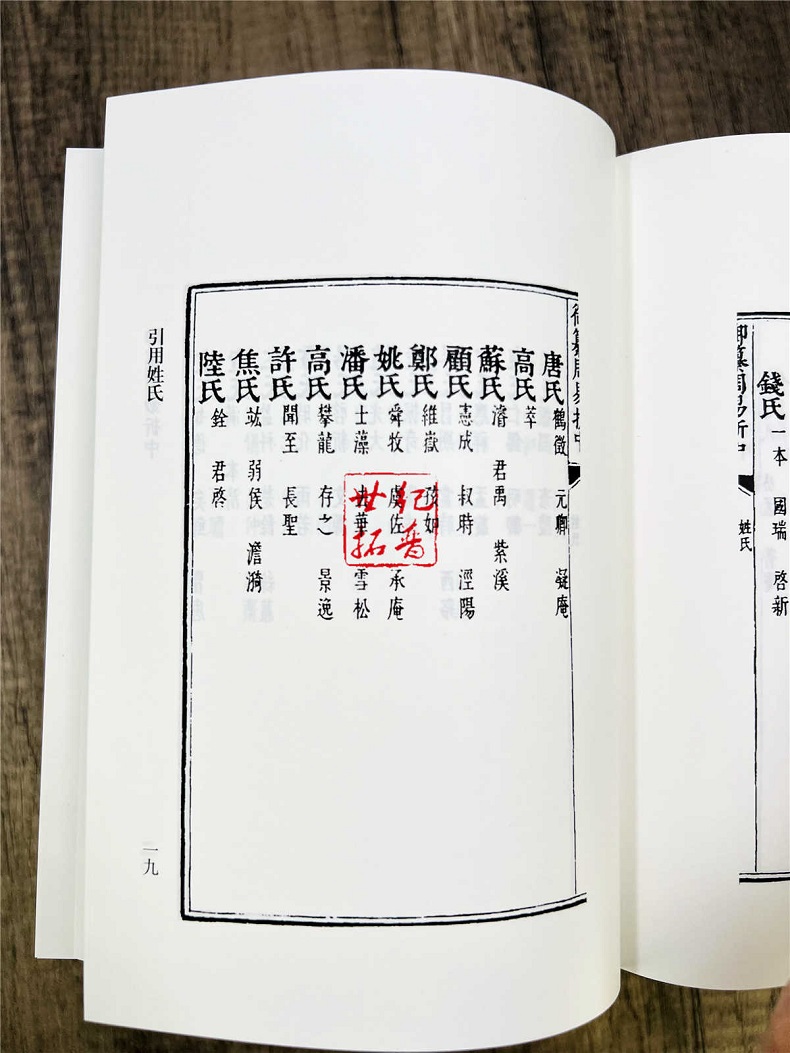 錢氏 一本 國瑞 啓新
御纂周易折中 姓氏
御纂周易折中
唐氏 鶴徵 元卿 凝庵
高氏 萃
蘇氏 濬 君禹 紫溪
顧氏 憲成 叔時 涇陽
鄭氏 維嶽 孩如
姚氏 舜牧 虞佐 承庵
潘氏 士藻 去華 雪松
高氏 攀龍 存之 景逸
許氏 聞至 長聖
焦氏 竑 弱侯 澹漪
陸氏 銓 君啓
引用姓氏
一九
世纪
拓普